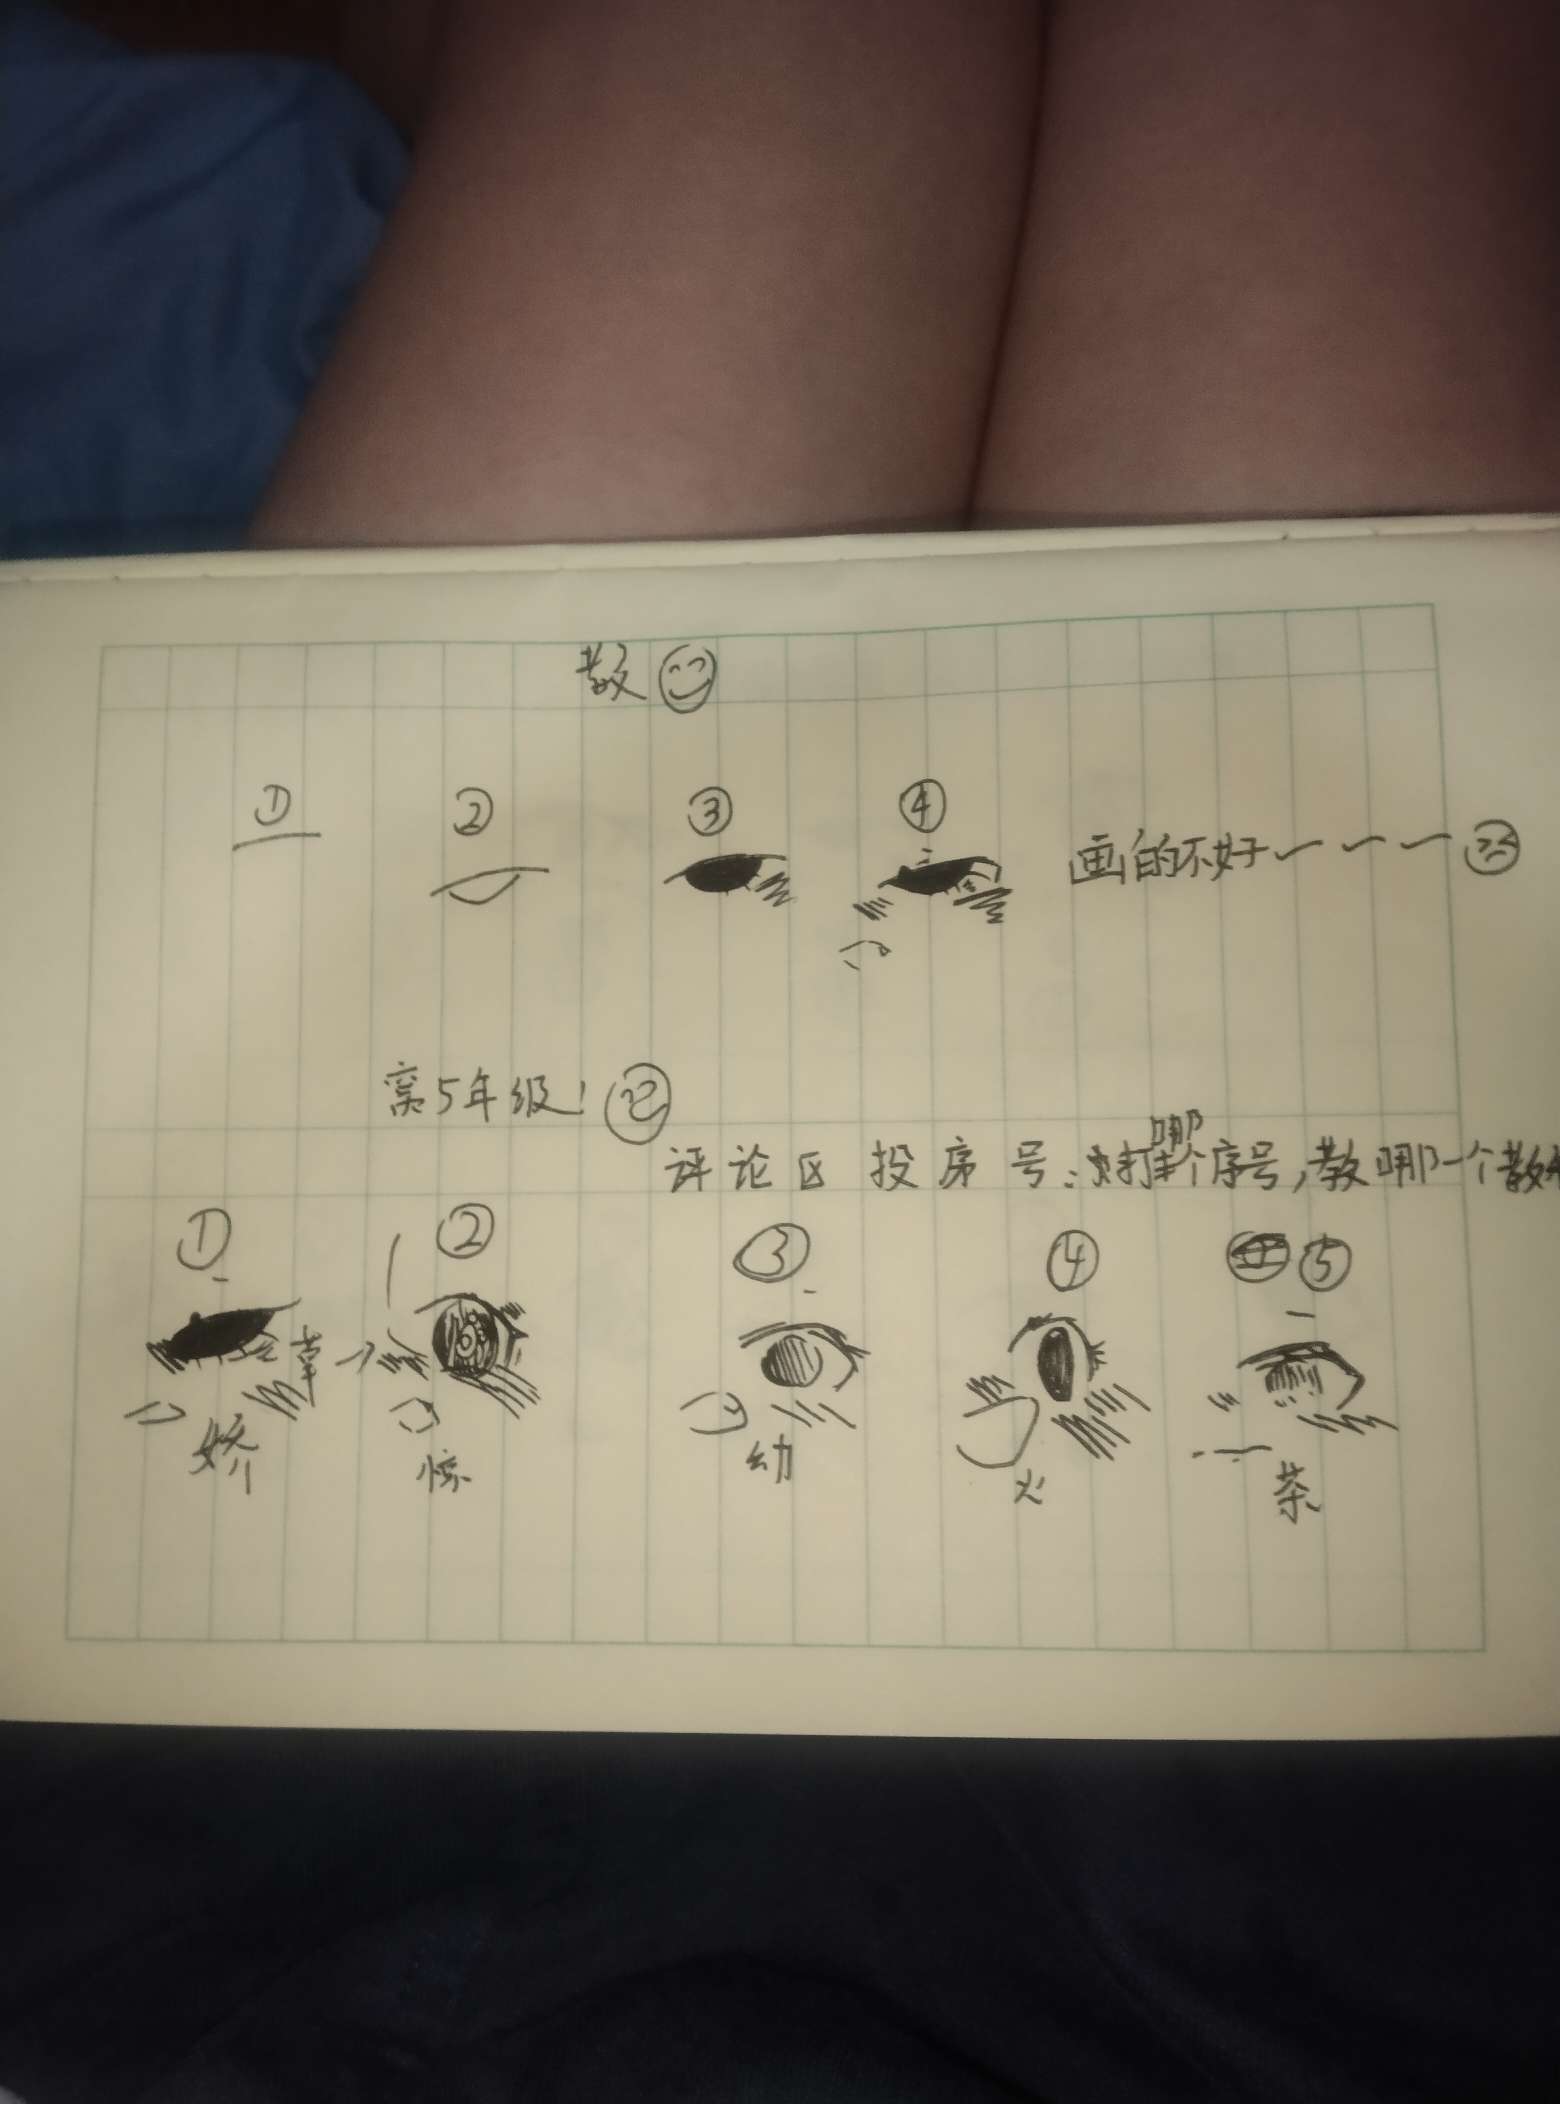 教
① ② ③ ④
画的不好
窝5年级!
哪
评论区投序号:打个序号,教哪一个教
① ② ③ ④ ⑤
草
娇 惊 幼 火 茶